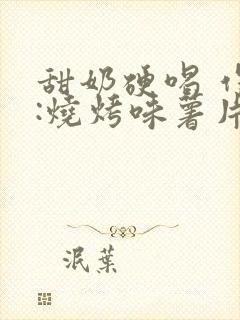 甜奶硬唱
:燒烤味薯片
泯葉